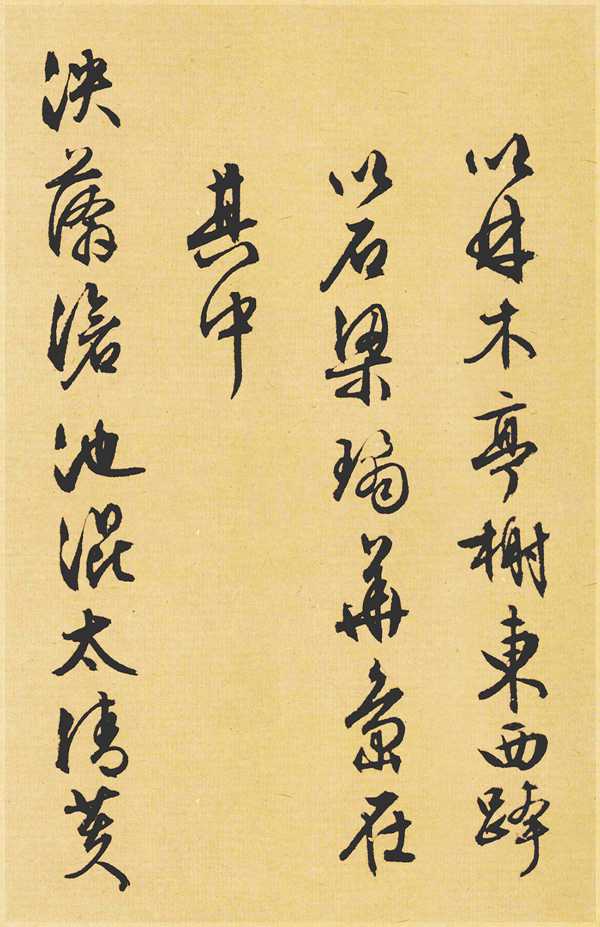 以林木亭榭東西跨
以石梁瓊華島在
其中
泱漭滄池混太清芙